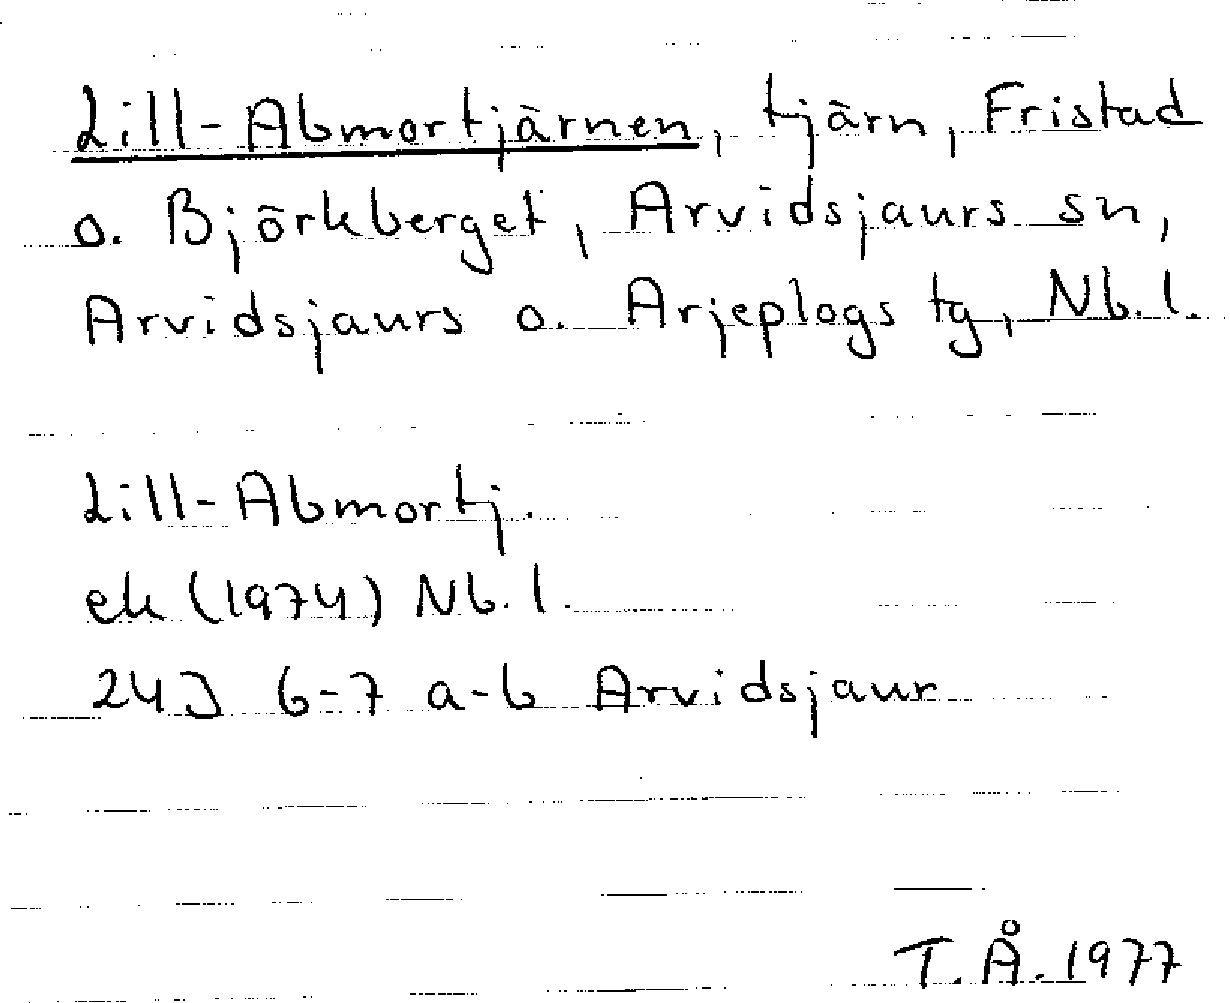 Lill-Abmortjärnen, tjärn, Fristad
o. Björkberget, Arvidsjaurs sn,
Arvidsjaurs o. Arjeplogs tg, Nb. l.
Lill-Abmortj.
ek (1974) Nb. l.
24J 6-7 a-b Arvidsjaur
T.Å. 1977